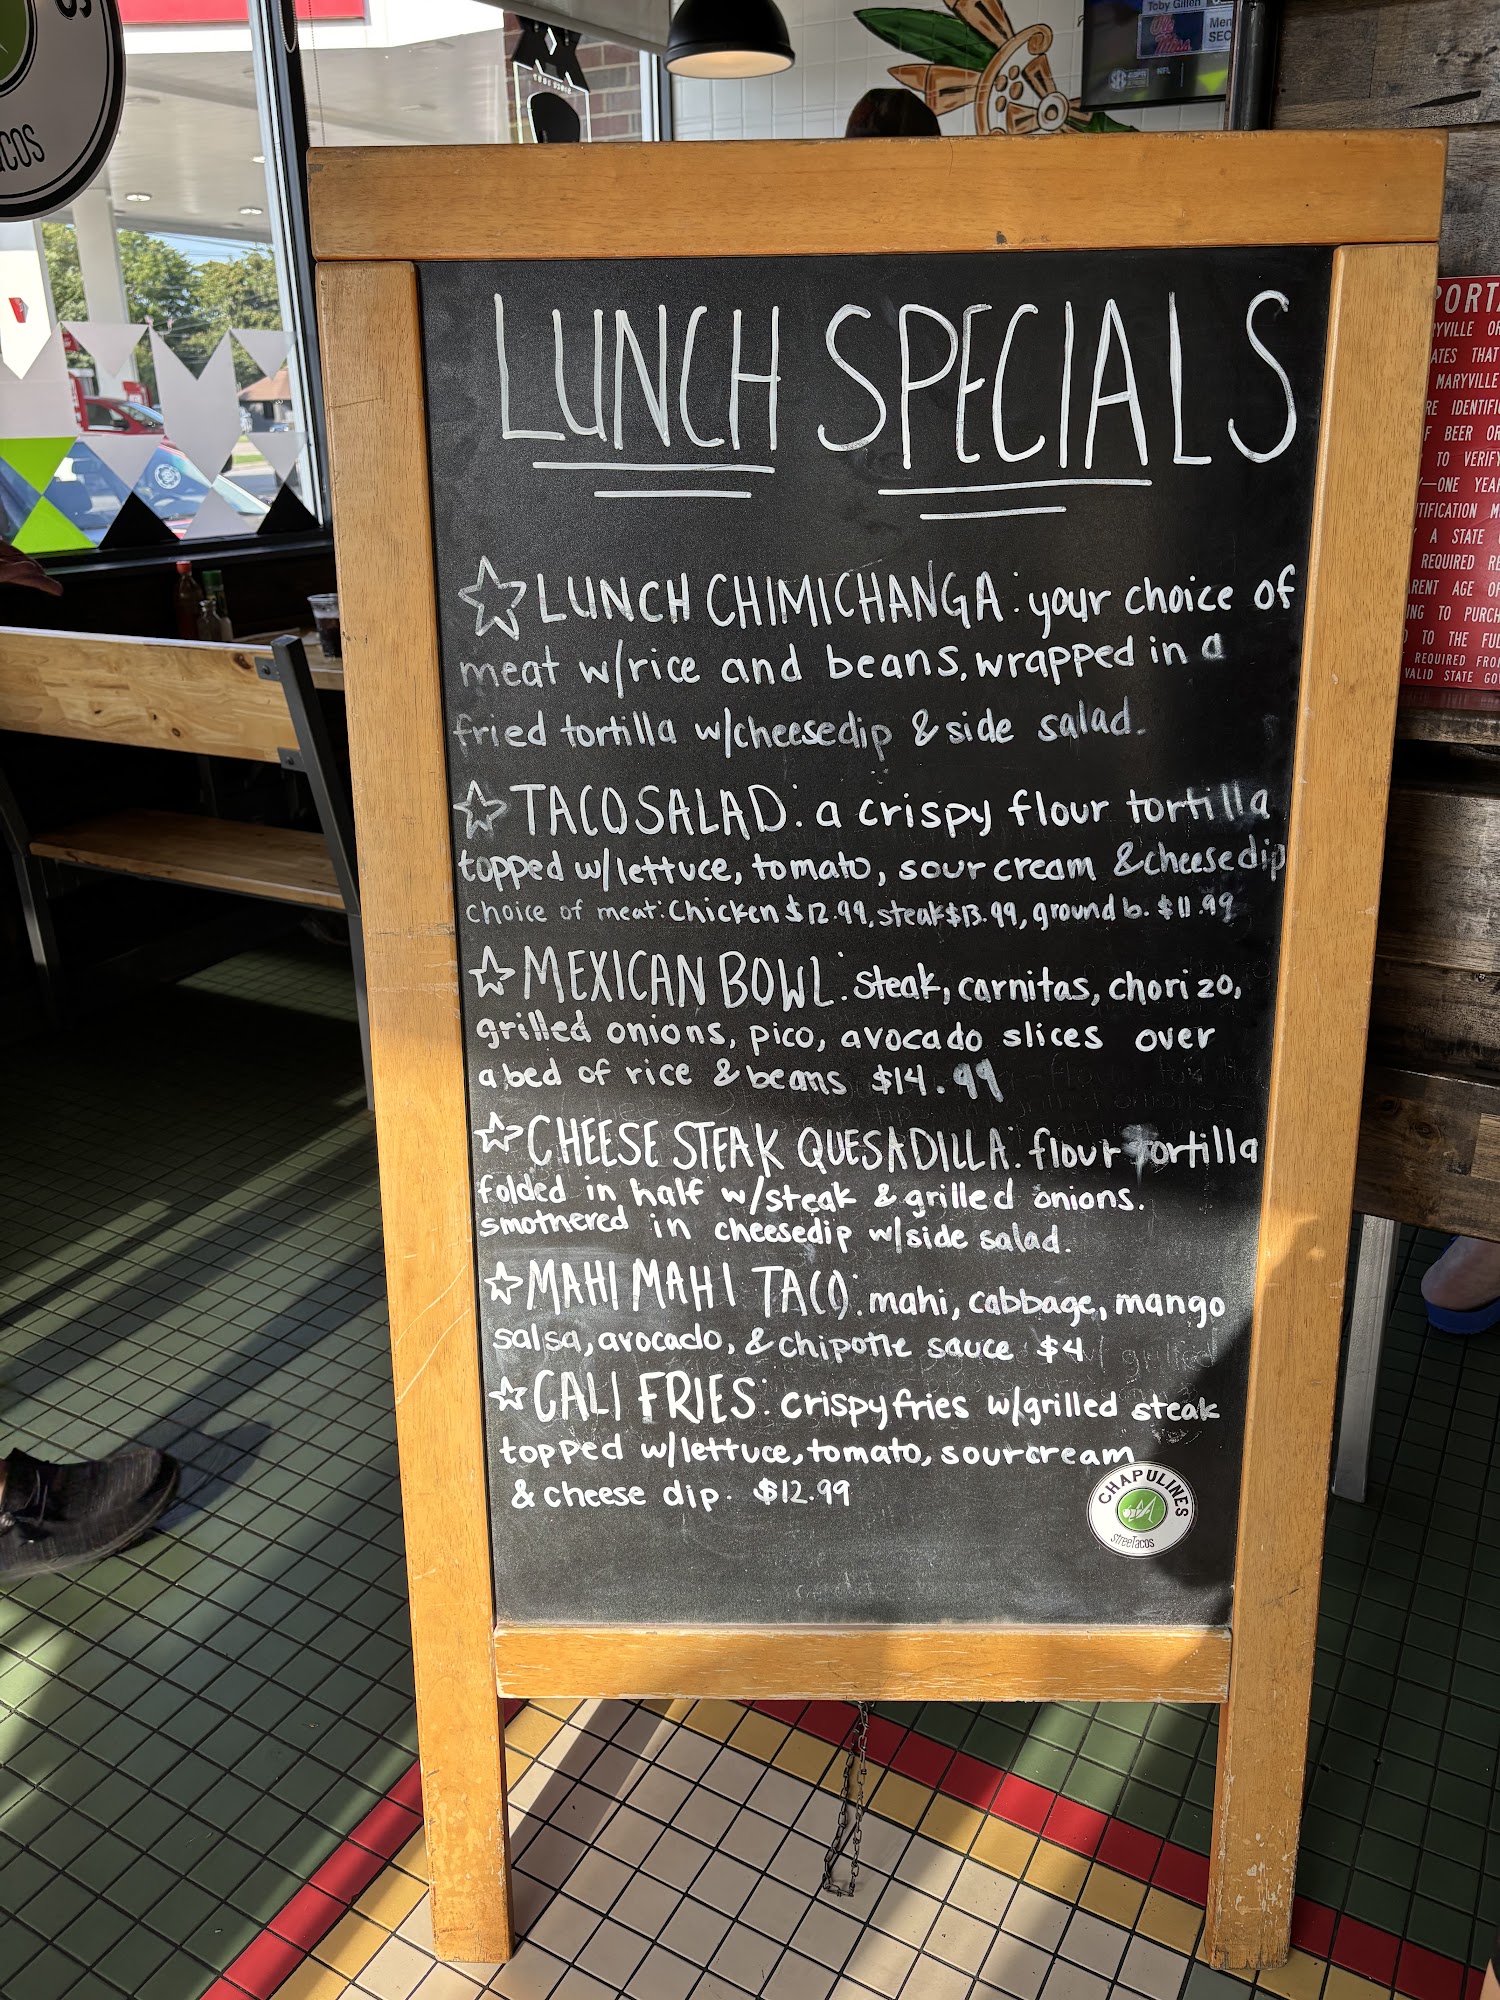 Tacos
SINCE 1897
Toby Gillen
Ole Miss
Men
SEC
SEC ESPN
NFL
LUNCH SPECIALS
LUNCH CHIMICHANGA: your choice of
meat w/rice and beans, wrapped in a
fried tortilla w/cheesedip & side salad.
TACO SALAD: a crispy flour tortilla
topped w/lettuce, tomato, sour cream & cheese dip
choice of meat: Chicken $12.99, steak $13.99, ground b. $11.99
MEXICAN BOWL: steak, carnitas, chorizo,
grilled onions, pico, avocado slices over
a bed of rice & beans $14.99
CHEESE STEAK QUESADILLA: flour tortilla
folded in half w/steak & grilled onions.
smothered in cheesedip w/side salad.
MAHI MAHI TACO: mahi, cabbage, mango
salsa, avocado, & chipotle sauce $4
CALI FRIES: crispy fries w/grilled steak
topped w/lettuce, tomato, sour cream
& cheese dip. $12.99
CHAPULINES
streeTacos
PORTA
RYVILLE OR
ATES THAT
MARYVILLE
RE IDENTIFI
F BEER OR
TO VERIFY
—ONE YEAR
TIFICATION M
A STATE
REQUIRED RE
RENT AGE OF
ING TO PURCH
TO THE FUL
REQUIRED FROM
VALID STATE GOV